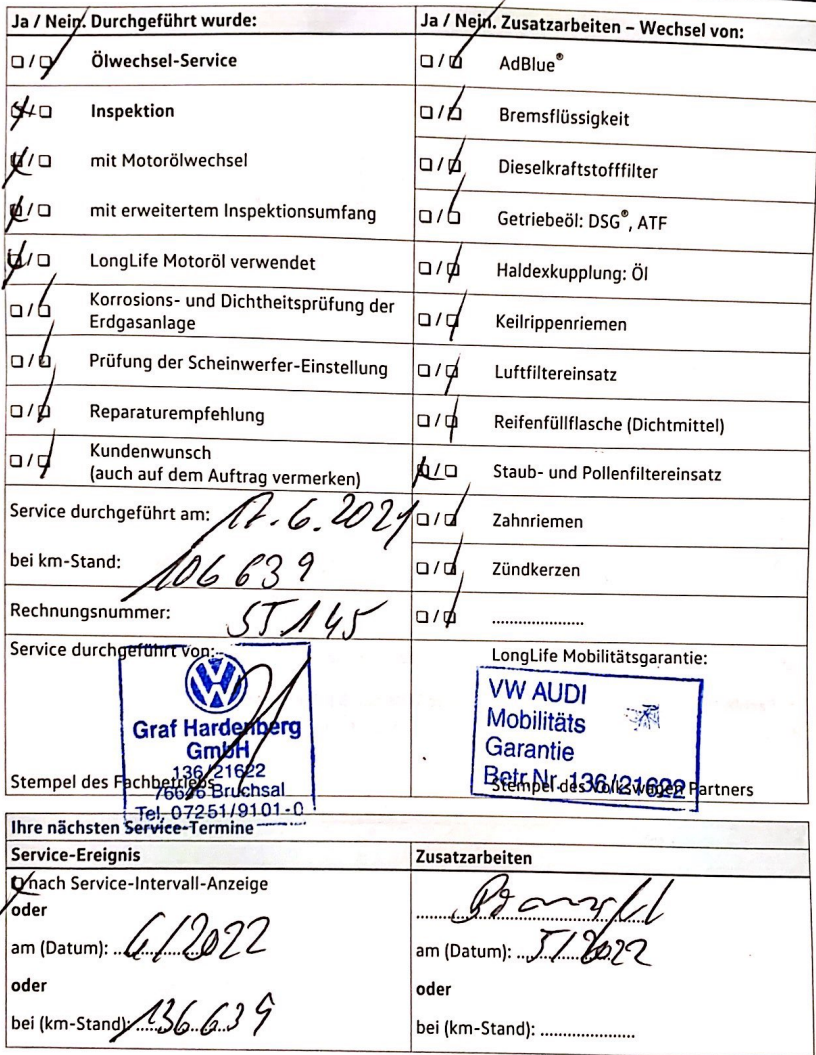 Ja / Nein. Durchgeführt wurde:
Ölwechsel-Service
Inspektion
mit Motorölwechsel
mit erweitertem Inspektionsumfang
LongLife Motoröl verwendet
Korrosions- und Dichtheitsprüfung der
Erdgasanlage
Prüfung der Scheinwerfer-Einstellung
Reparaturempfehlung
Kundenwunsch
(auch auf dem Auftrag vermerken)
Service durchgeführt am: 17.6.2021
bei km-Stand: 106 639
Rechnungsnummer: 55145
Service durchgeführt von:
Graf Hardenberg
GmbH
136/21622
76646 Bruchsal
Tel. 07251/9101-0
Stempel des Fachbetriebs
Ja / Nein. Zusatzarbeiten – Wechsel von:
AdBlue®
Bremsflüssigkeit
Dieselkraftstofffilter
Getriebeöl: DSG®, ATF
Haldexkupplung: Öl
Keilrippenriemen
Luftfiltereinsatz
Reifenfüllflasche (Dichtmittel)
Staub- und Pollenfiltereinsatz
Zahnriemen
Zündkerzen
.....................
LongLife Mobilitätsgarantie:
VW AUDI
Mobilitäts
Garantie
Betr.Nr. 136/21622
Stempel des Volkswagen Partners
Ihre nächsten Service-Termine
Service-Ereignis
nach Service-Intervall-Anzeige
oder
am (Datum): 6/2022
oder
bei (km-Stand): 136.639
Zusatzarbeiten
am (Datum): 5/2022
oder
bei (km-Stand): .....................